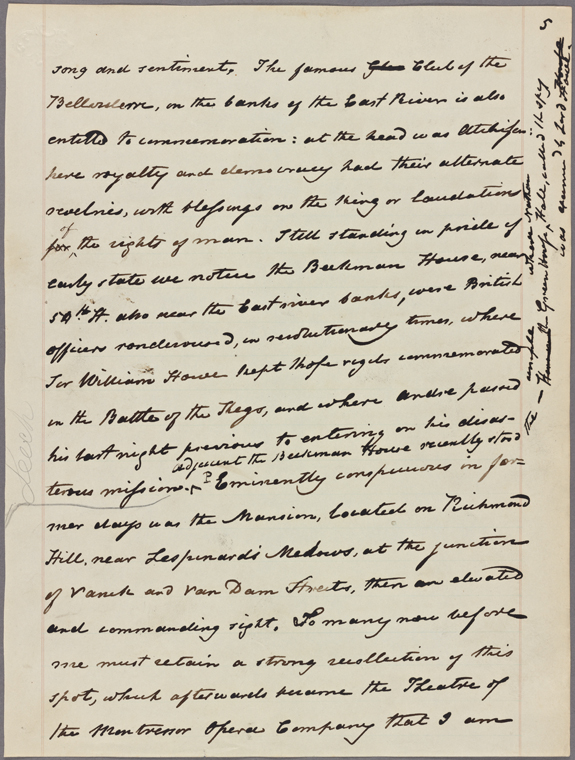 song and sentiment. The famous Club of the
Bellvedere, on the banks of the East River is also
entitled to commemoration: at the head was Atchison:
here royalty and democracy had their alternate
revelries, with blessings on the King or laudations
for of the rights of man. Still standing in pride of
early state we notice the Beekman House, near
50th St. also near the East river banks, were British
officers rendezvoused, in revolutionary times, where
Sir William Howe kept those vigils commemorated
in the Battle of the Kegs, and where André passed
his last night previous to entering on his disas-
adjacent the Beekman House recently stood
terous mission. Eminently conspicuous in for-
mer days was the Mansion, located on Richmond
Hill, near Lespinard's Medows, at the junction
of Varick and Van Dam Streets, then an elevated
and commanding sight. So many now before
me must retain a strong recollection of this
spot, which afterwards became the Theatre of
the Montressor Opera Company that I am
the ample Green House, where Nathan
Hale, called the spy
was examined by Lord Howe.
5
Leech